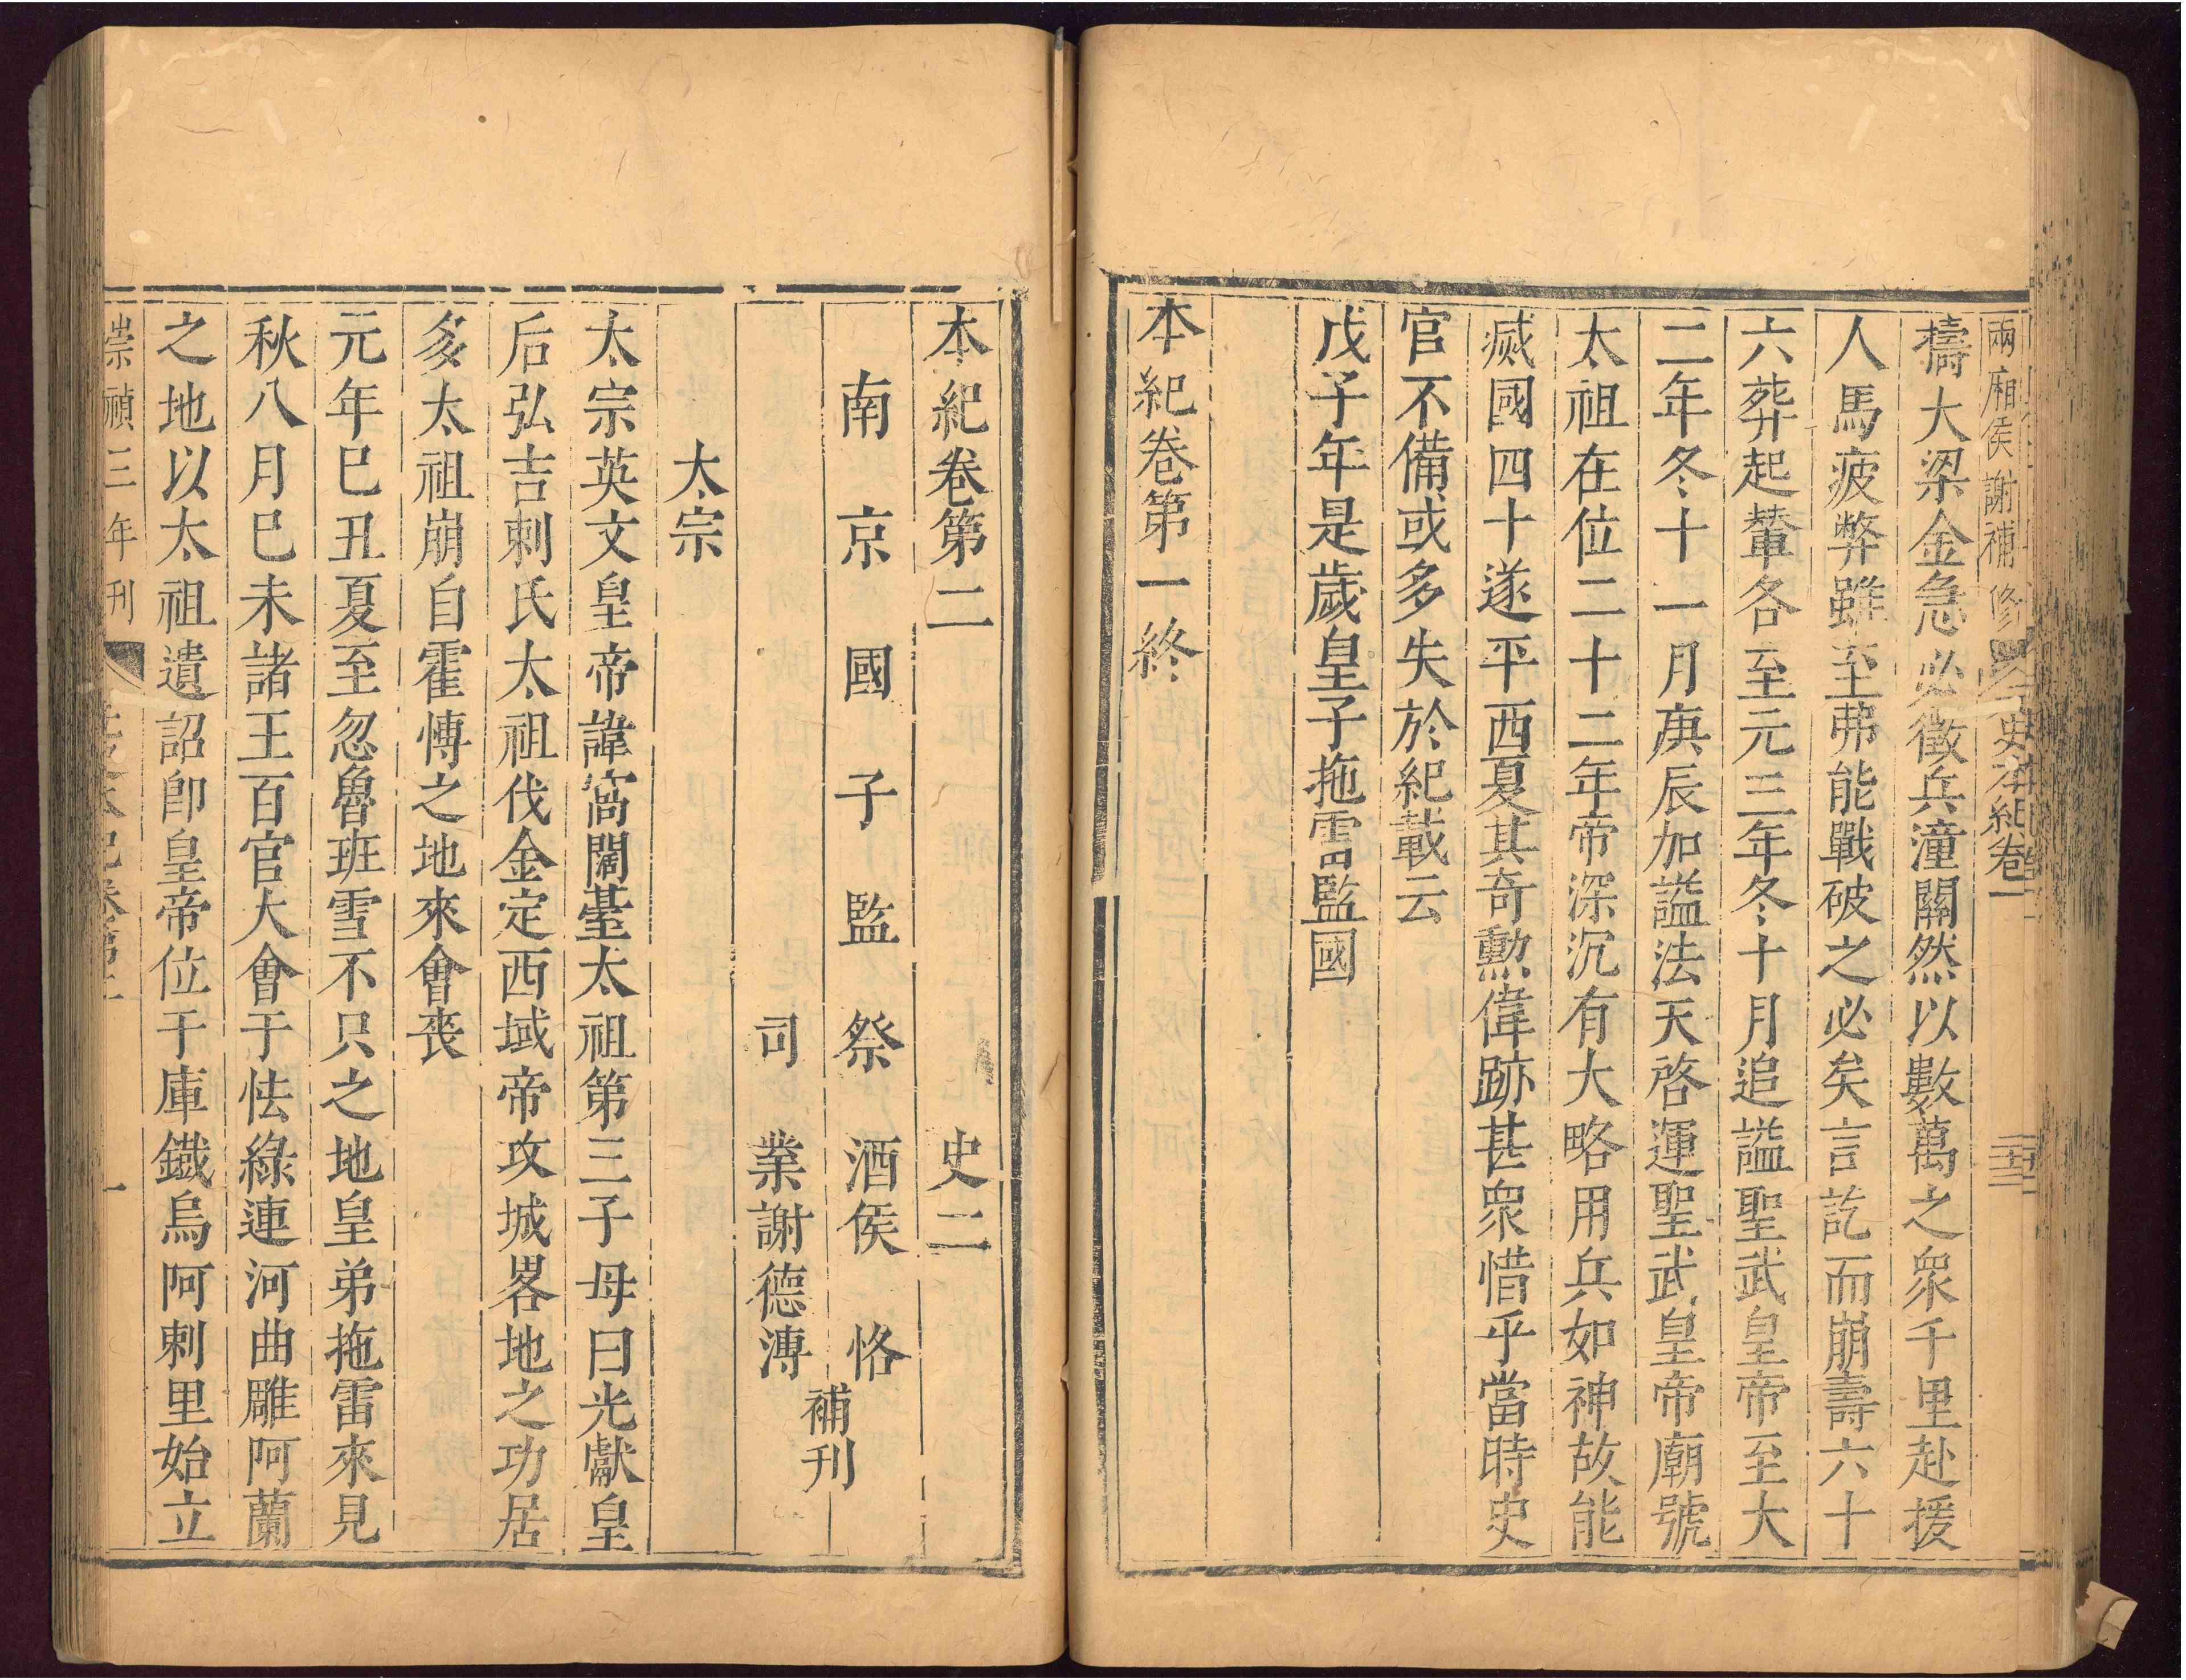 兩廂侯謝補修 史本紀卷一
擣大梁金急必徵兵潼關然以數萬之衆千里赴援
人馬疲弊雖至弗能戰破之必矣言訖而崩壽六十
六葬起輦各至元三年冬十月追謚聖武皇帝至大
二年冬十一月庚辰加謚法天啓運聖武皇帝廟號
太祖在位二十二年帝深沉有大略用兵如神故能
滅國四十遂平西夏其奇勲偉跡甚衆惜乎當時史
官不備或多失於紀載云
戊子年是歲皇子拖雷監國
本紀卷第一終
本紀卷第二 史二
南京國子監祭酒侯恪
司業謝德溥
補刊
太宗
太宗英文皇帝諱窩闊臺太祖第三子母曰光獻皇
后弘吉剌氏太祖伐金定西域帝攻城畧地之功居
多太祖崩自霍博之地來會喪
元年巳丑夏至忽魯班雪不只之地皇弟拖雷來見
秋八月巳未諸王百官大會于怯綠連河曲雕阿蘭
之地以太祖遺詔卽皇帝位于庫鐵烏阿剌里始立
崇禎三年刊 本紀卷第二 一